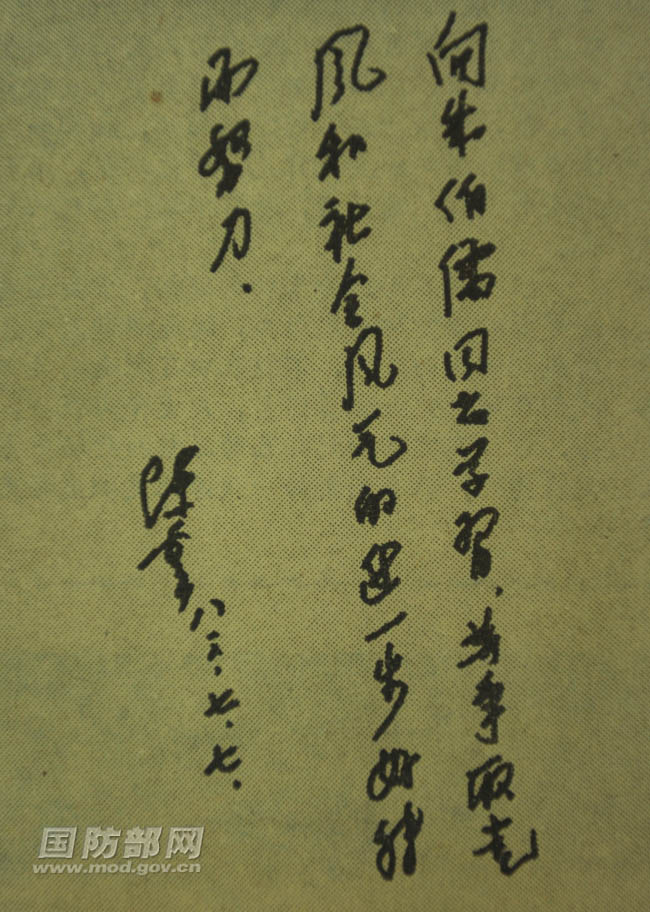 向朱伯儒同志学习，为争取党
风和社会风气的进一步好转
而努力．
陈云 八三．七．七．
国防部网
www.mod.gov.cn